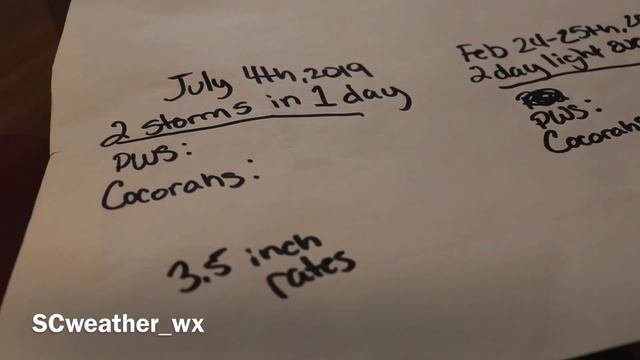 July 4th, 2019
2 storms in 1 day
PWS:
Cocorahs:
3.5 inch
rates
Feb 24-25th, 
2 day light
PWS:
Cocorahs
SCweather_wx